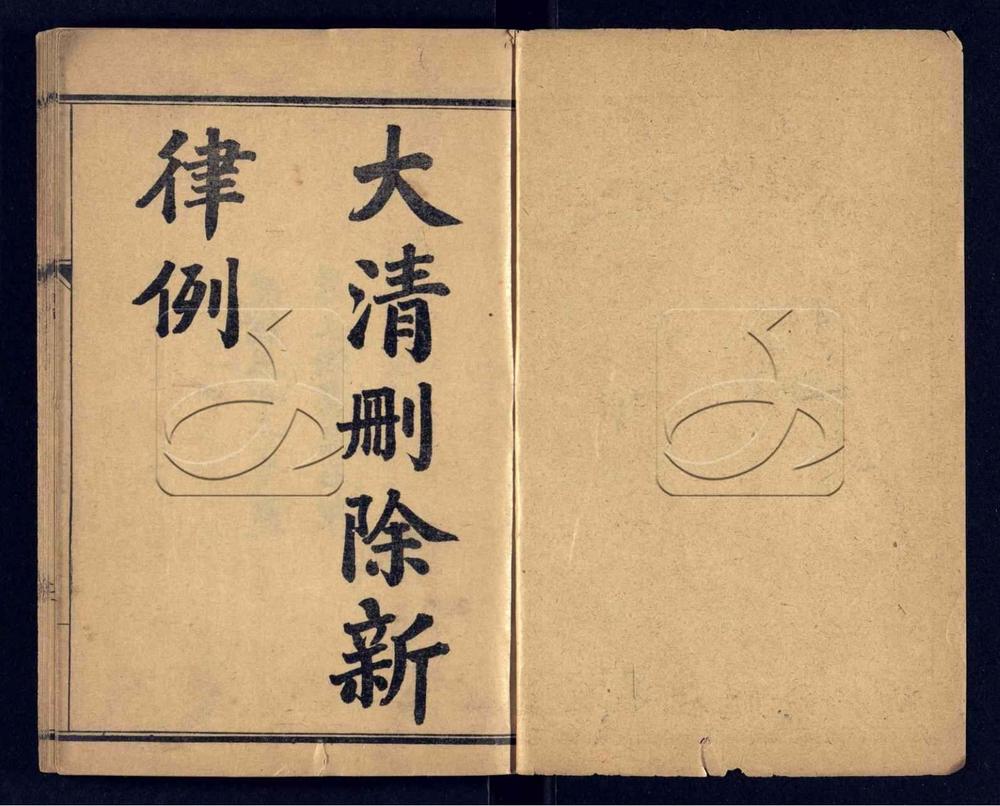 大清刪除新
律例